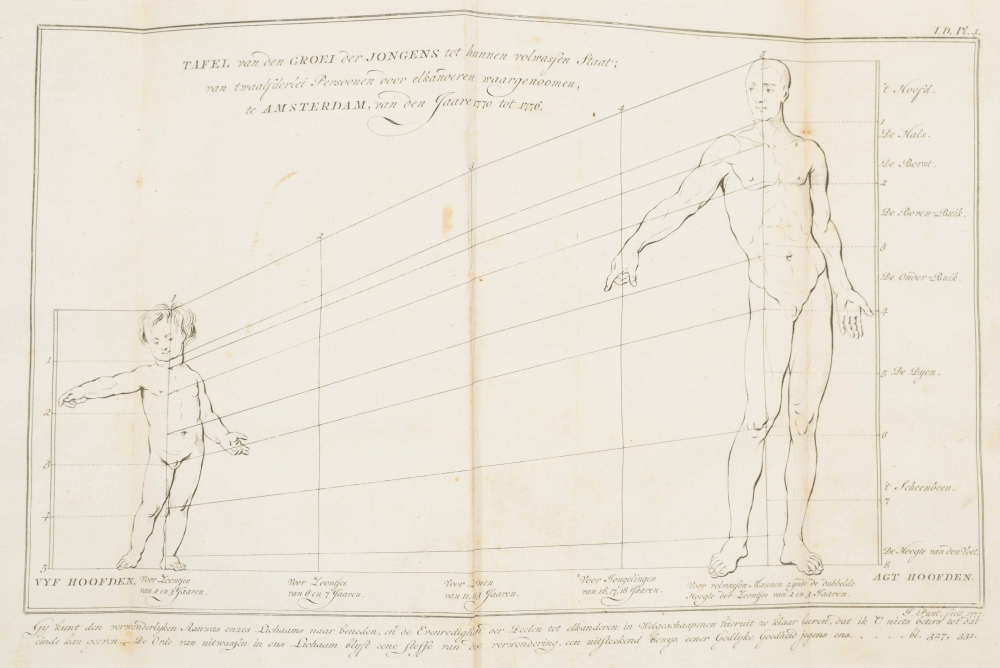 I.D. Pl. 4.
TAFEL van den GROEI der JONGENS tot hunnen volwassen Staat;
van twaalfderlei Persoonen door elkanderen waargenoomen,
te AMSTERDAM, van den Jaare 1770 tot 1776.
1
2
3
4
5
't Hoofd.
1
De Hals.
De Borst.
2
De Boven-Buik.
3
De Onder-Buik.
4
5 De Dyen.
6
't Scheenbeen.
7
De Hoogte van den Voet.
8
1
2
3
4
5
VYF HOOFDEN,
Voor Zoontjes
van 2 en 3 Jaaren.
Voor Zoontjes
van 6 en 7 Jaaren.
Voor
van 11, 13 Jaaren.
Voor Jongelingen
van 16, 17, 18 Jaaren.
Voor volwassen Mannen zynde de dubbelde
Hoogte der Zoontjes van 2 en 3 Jaaren.
ACT HOOFDEN.
Punt, fecit 1777.
Gy kunt den verwonderlyken Aanwas onzes Lichaams naar beneden, en de Evenredigheit der Deelen tot elkanderen in Welgeschaapenen hieruit zo klaar leeren, dat ik U niets beters tot dat
einde kan geeven. De Orde van uitwassen in ons Lichaam blyft eene stoffe van de verwondering, een uitsteekend bewys eener Godlyke Goedheit jegens ons. . . . . . bl. 327, 332.